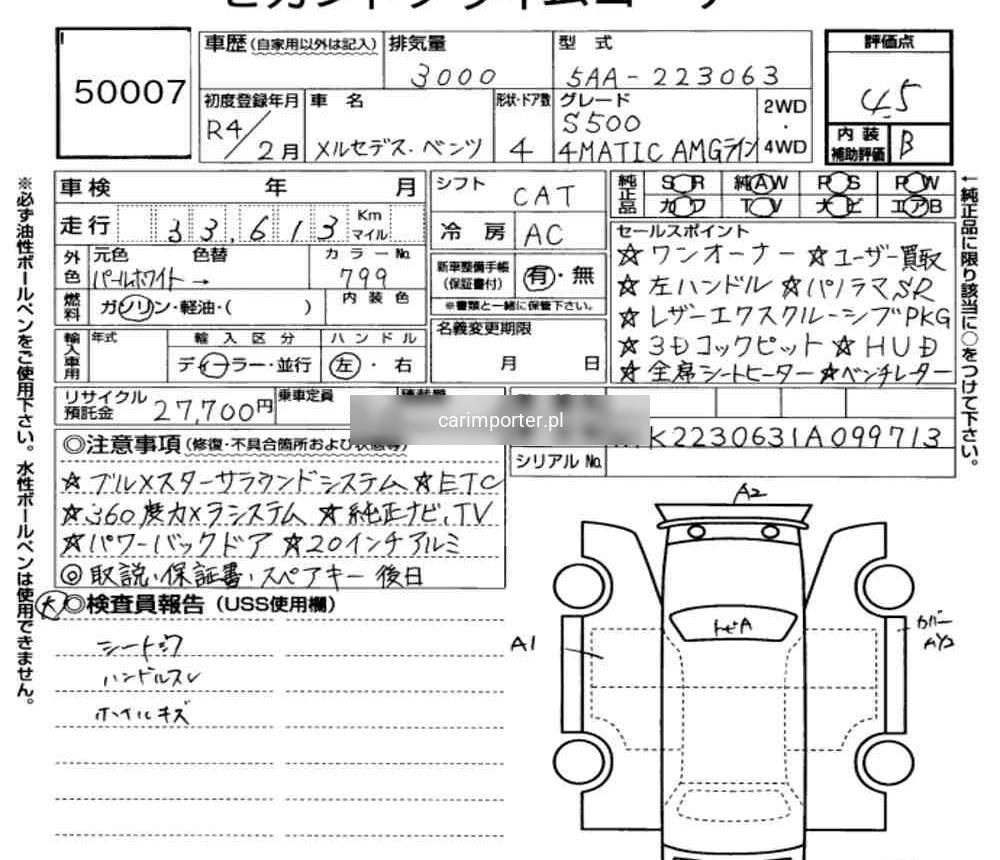 50007
車歴(自家用以外は記入) 排気量 型式 評価点
3000 5AA-223063 4.5
初度登録年月 車名 形状・ドア数 グレード 2WD・4WD
R4/2月 メルセデス・ベンツ 4 S500
4MATIC AMGライン
内装補助評価 B
車検 年 月 シフト CAT
純正品 SR 純AW PS PW
カワ TV ナビ エアB
走行 33,613 Km マイル 冷房 AC
セールスポイント
外色 元色 色替 カラーNo. 新車整備手帳(保証書付) 有・無
パールホワイト→ 799
※書類と一緒に保管下さい。
燃料 ガソリン・軽油・( ) 内装色
☆ワンオーナー ☆ユーザー買取
☆左ハンドル ☆パノラマSR
☆レザーエクスクルーシブPKG
☆3Dコックピット ☆HUD
☆全席シートヒーター ☆ベンチレーター
名義変更期限
月 日
輸入車用 年式 輸入区分 ハンドル
ディーラー・並行 左・右
リサイクル預託金 27,700円 乗車定員
carimporter.pl
K2230631A099713
シリアルNo.
◎注意事項(修復・不具合箇所および状態等)
☆ブルメスターサラウンドシステム ☆ETC
☆360度カメラシステム ☆純正ナビ、TV
☆パワーバックドア ☆20インチアルミ
◎取説・保証書・スペアキー後日
◎検査員報告(USS使用欄)
シートシワ
ハンドルスレ
ホイルキズ
A2
トビA
A1
カバー
※必ず油性ボールペンをご使用下さい。水性ボールペンは使用できません。
←純正品に限り該当に○をつけて下さい。